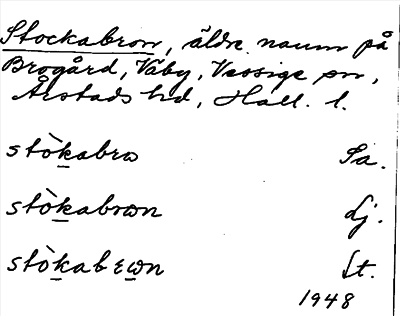 Stockabron, äldre namn på
Brogård, Väby, Vessige sn,
Årstads hd, Hall. l.
stòkabrɷ Sa.
stòkabrɷn Lj.
stòkabrɷn St.
1948